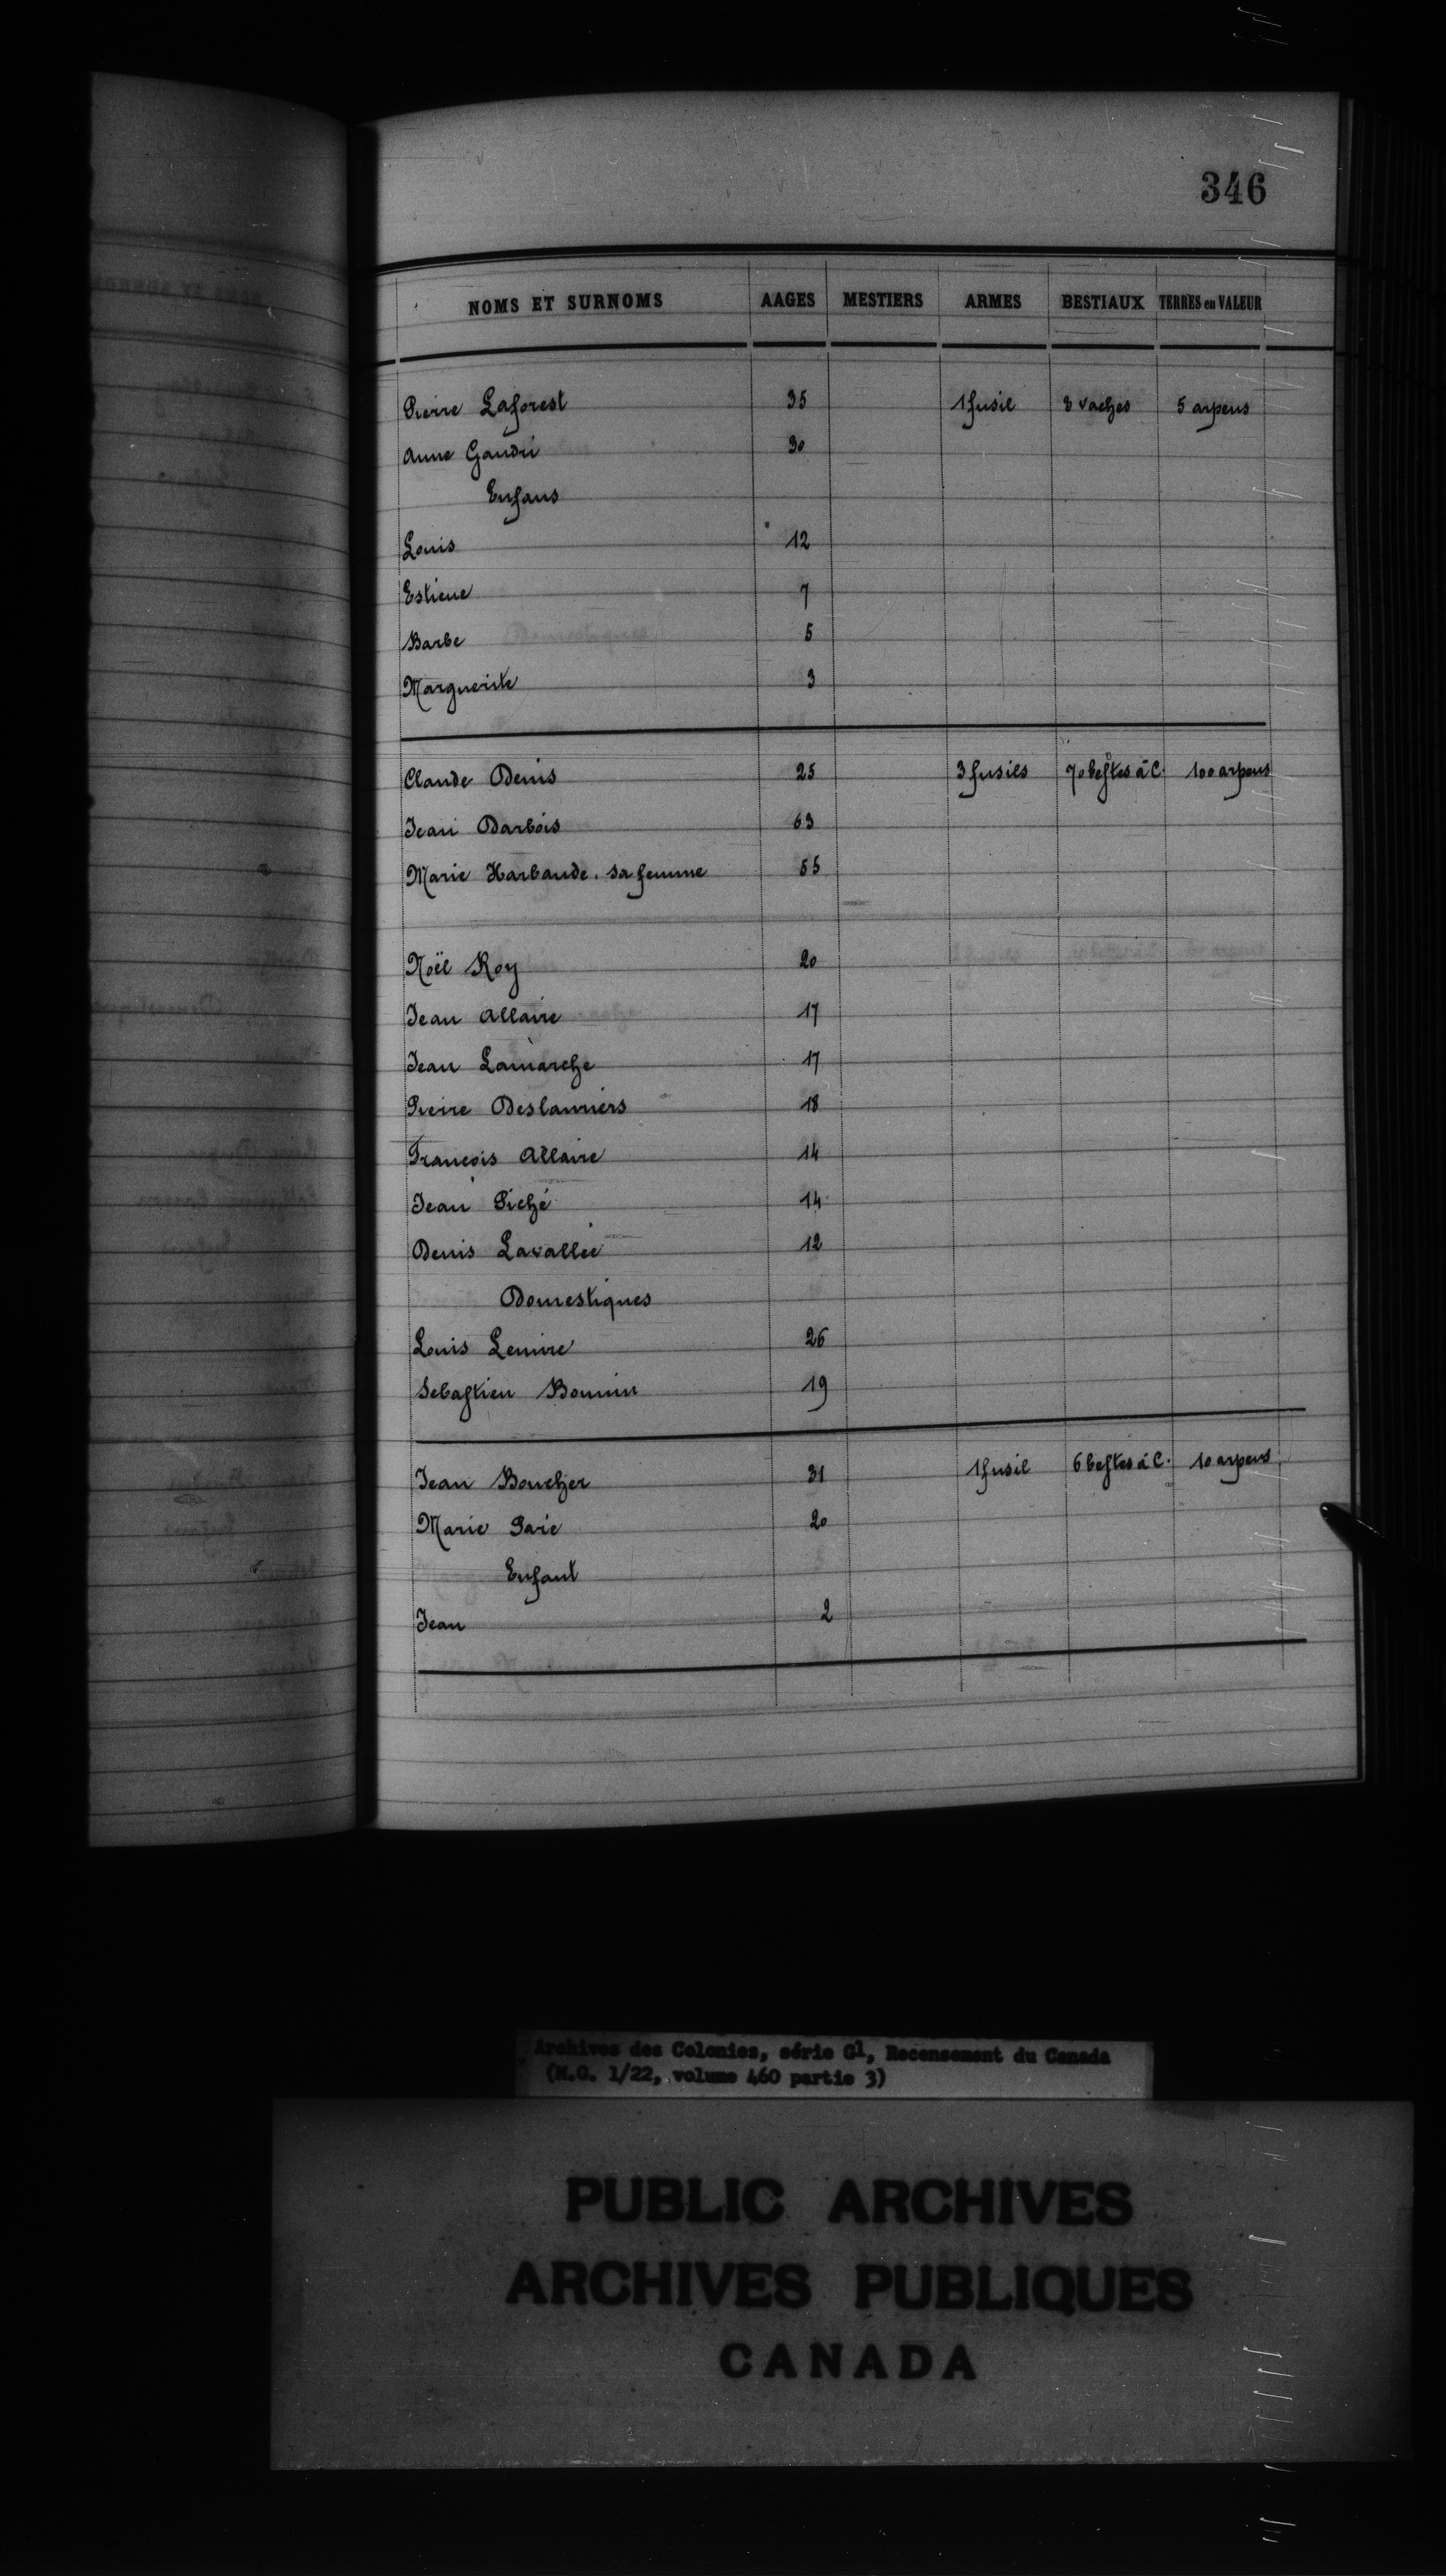 346
NOMS ET SURNOMS AAGES MESTIERS ARMES BESTIAUX TERRES en VALEUR
Pierre Laforest 35 1 fusil 8 vaches 5 arpens
Anne Gaudri 30
Enfans
Louis 12
Estiene 7
Barbe 5
Marguerite 3
Claude Denis 25 3 fusils 70 bestes à C. 100 arpens
Jean Darbois 63
Marie Harbaude, sa femme 55
Noël Roy 20
Jean Allaire 17
Jean Lamarche 17
Pierre Deslauriers 18
François Allaire 14
Jean Piché 14
Denis Lavallée 12
Domestiques
Louis Lemire 26
Sebastien Bonnin 19
Jean Boucher 31 1 fusil 6 bestes à C. 10 arpens
Marie Paré 20
Enfant
Jean 2
Archives des Colonies, série G1, Recensement du Canada
(M.G. 1/22, volume 460 partie 3)
PUBLIC ARCHIVES
ARCHIVES PUBLIQUES
CANADA